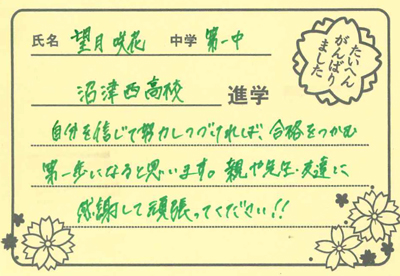 氏名 望月咲花 中学 第一中
たいへん
がんばり
ました
沼津西高校 進学
自分を信じて努力しつづければ、合格をつかむ
第一歩になると思います。親や先生・友達に
感謝して頑張ってください!!